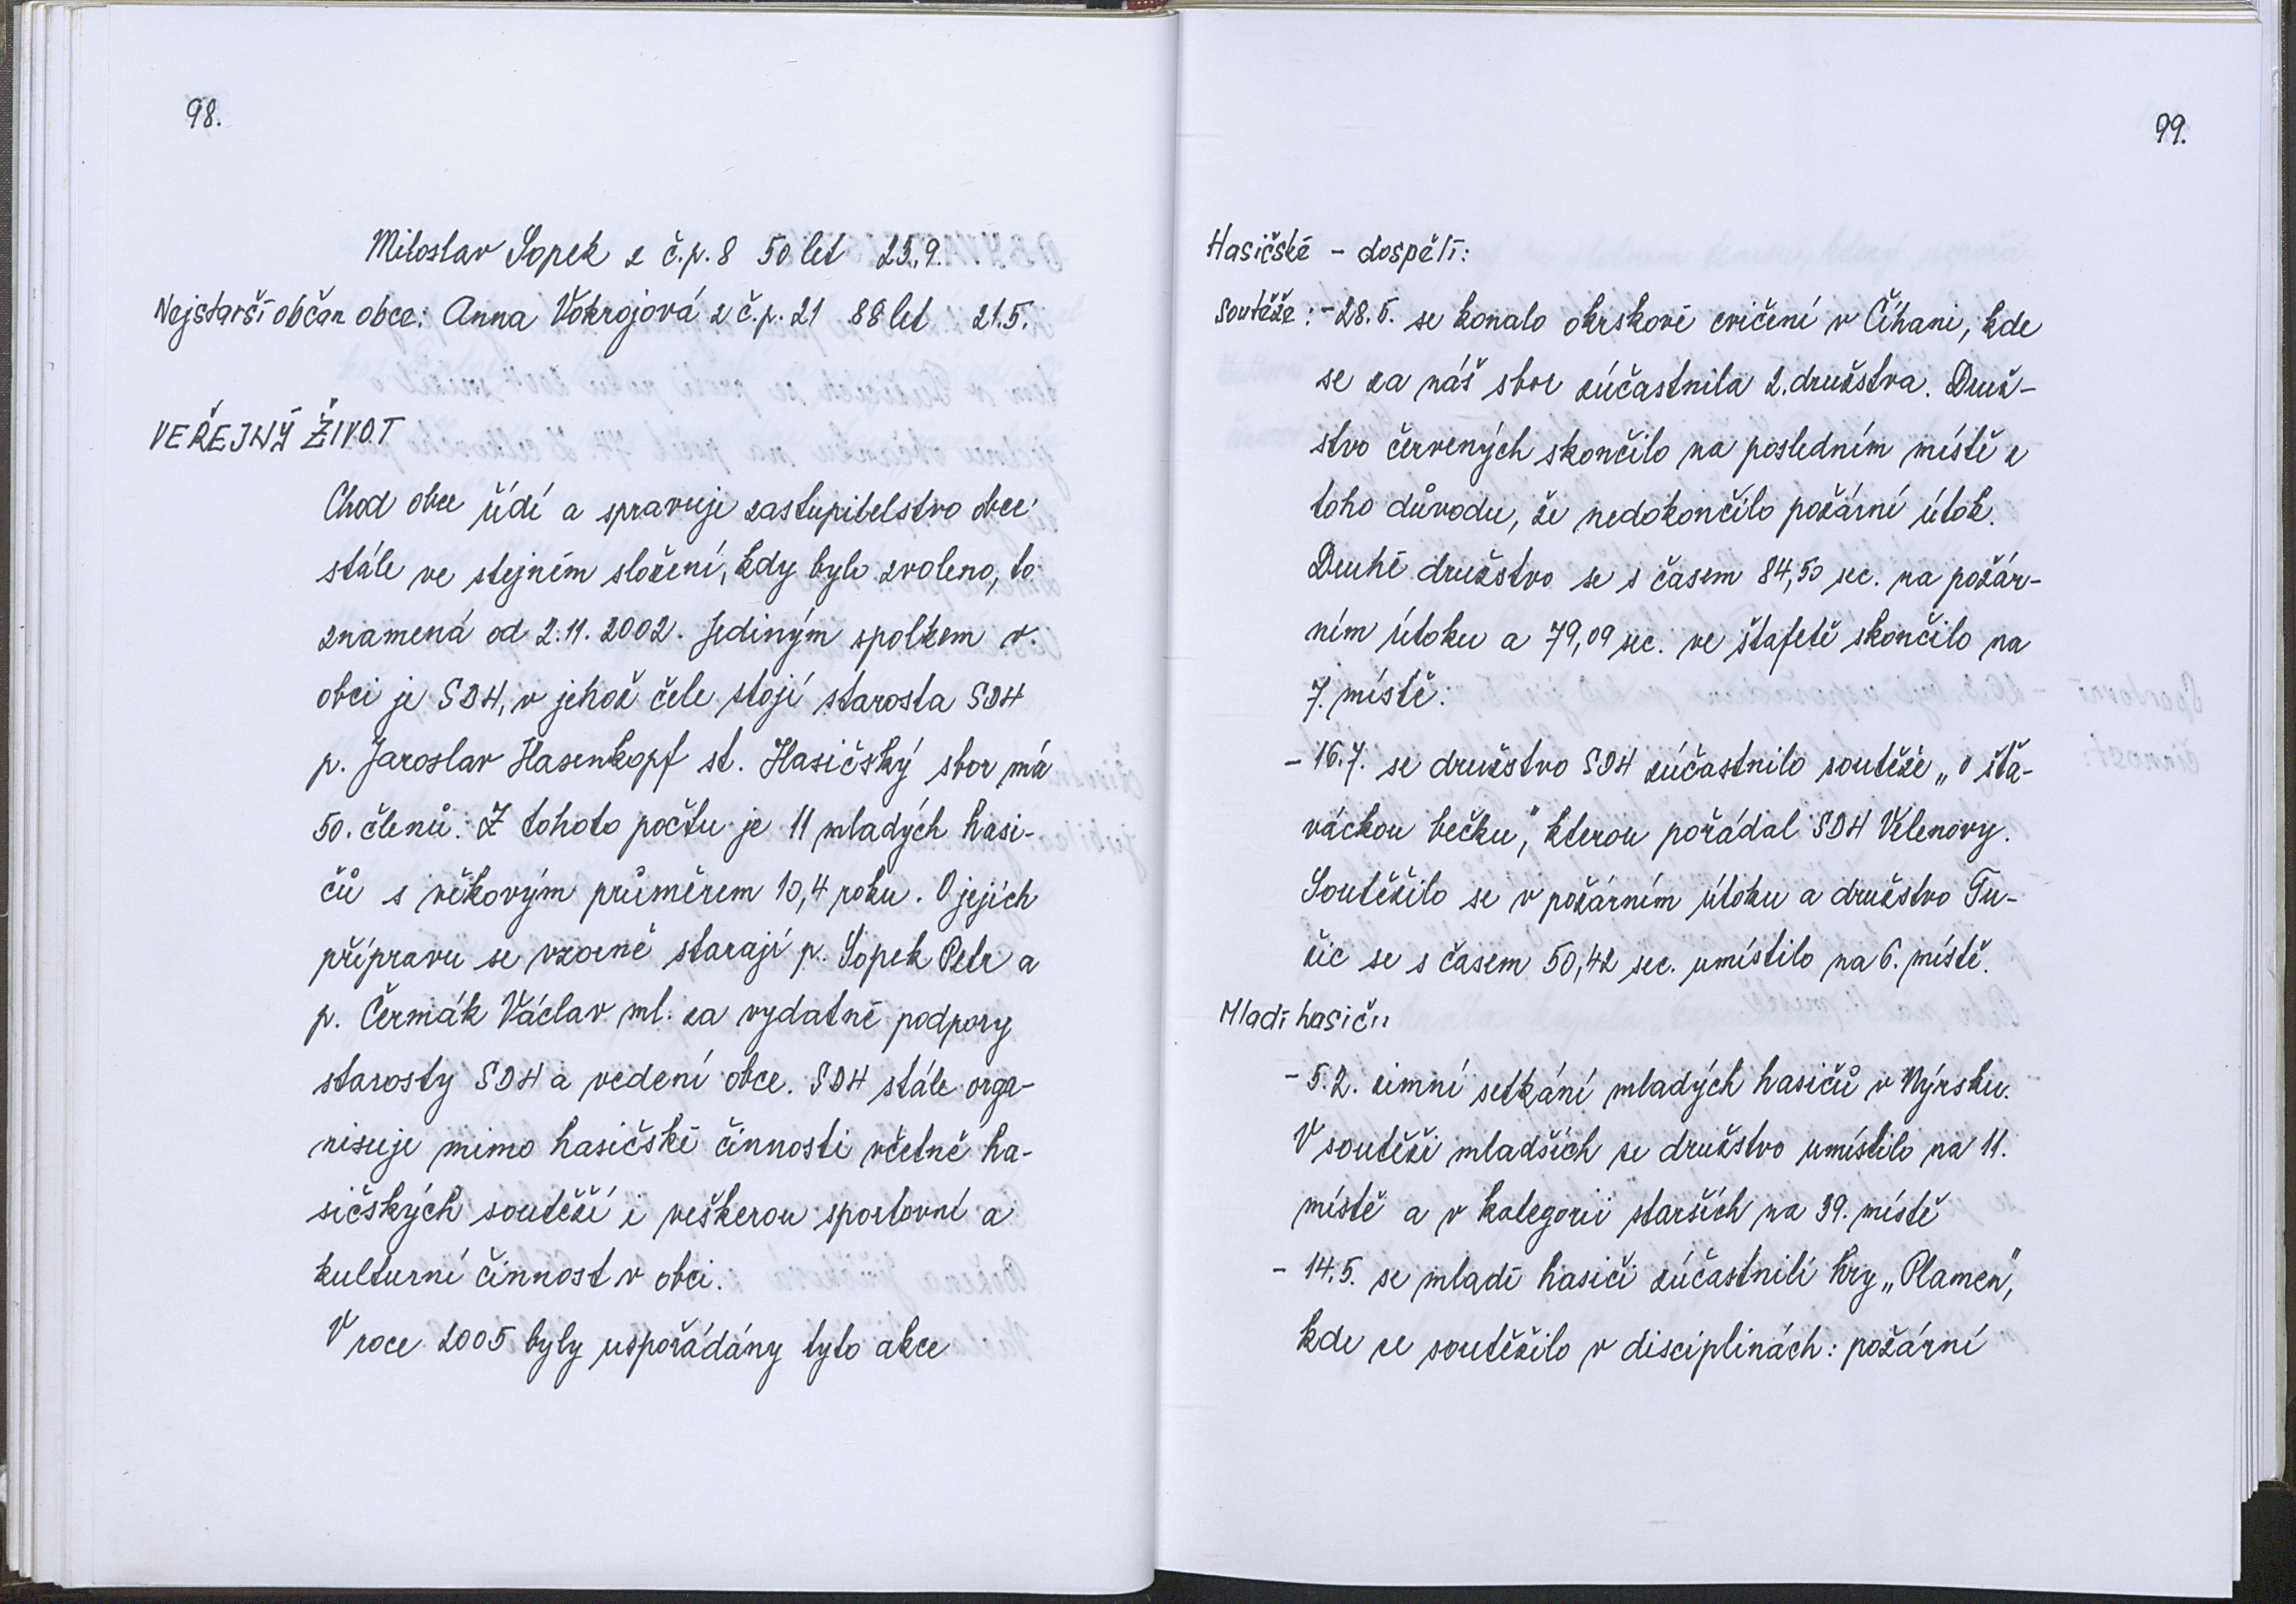 98.
Miloslav Sopek z č.p. 8 50 let 25.9.
Nejstarší občan obce: Anna Vokrojová z č.p. 21 88 let 21.5.
VEŘEJNÝ ŽIVOT
Chod obce řídí a spravuje zastupitelstvo obce
stále ve stejném složení, kdy bylo zvoleno, to
znamená od 2.11. 2002. Jediným spolkem v
obci je SDH, v jehož čele stojí starosta SDH
p. Jaroslav Hasenkopf st. Hasičský sbor má
50. členů. Z tohoto počtu je 11 mladých hasi-
čů s věkovým průměrem 10,4 roku. O jejich
přípravu se vzorně starají p. Sopek Petr a
p. Čermák Václav ml. za vydatné podpory
starosty SDH a vedení obce. SDH stále orga-
nisuje mimo hasičské činnosti včetně ha-
sičských soutěží i veškerou sportovní a
kulturní činnost v obci.
V roce 2005 byly uspořádány tyto akce
99.
Hasičské - dospělí:
soutěže: - 28.5. se konalo okrskové cvičení v Číhani, kde
se za náš sbor zúčastnila 2. družstva. Druž-
stvo červených skončilo na posledním místě z
toho důvodu, že nedokončilo požární útok.
Druhé družstvo se s časem 84,50 sec. na požár-
ním útoku a 79,09 sec. ve štafetě skončilo na
7. místě.
- 16.7. se družstvo SDH zúčastnilo soutěže „o šťa-
váckou bečku", kterou pořádal SDH Velenovy.
Soutěžilo se v požárním útoku a družstvo Tu-
žic se s časem 50,42 sec. umístilo na 6. místě.
Mladí hasiči:
- 5.2. zimní setkání mladých hasičů v Nýrsku.
V soutěži mladších se družstvo umístilo na 11.
místě a v kategorii starších na 39. místě
- 14.5. se mladí hasiči zúčastnili hry „Plamen",
kde se soutěžilo v disciplinách: požární